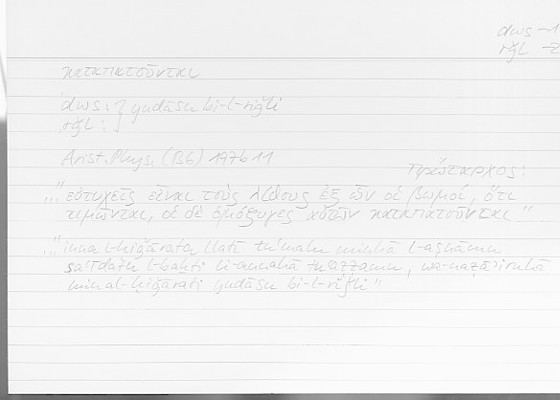 dws -1
rǧl -2
καταπατοῦνται
dws: } yudāsu bi-l-riǧli
rǧl:
Arist. Phys. (B6) 197b 11
Πρώταρχος:
..." εὐτυχεῖς εἶναι τοὺς λίθους ἐξ ὧν οἱ βωμοί, ὅτι
τιμῶνται, οἱ δὲ ὁμόζυγες αὐτῶν καταπατοῦνται "
..." inna l-ḥiǧārata llatī tuʿmalu minhā l-aṣnāmu
saʿīdatu l-baḫti li-annahā tuʿaẓẓamu, wa-naẓāʾiruhā
mina l-ḥiǧārati yudāsu bi-l-riǧli "